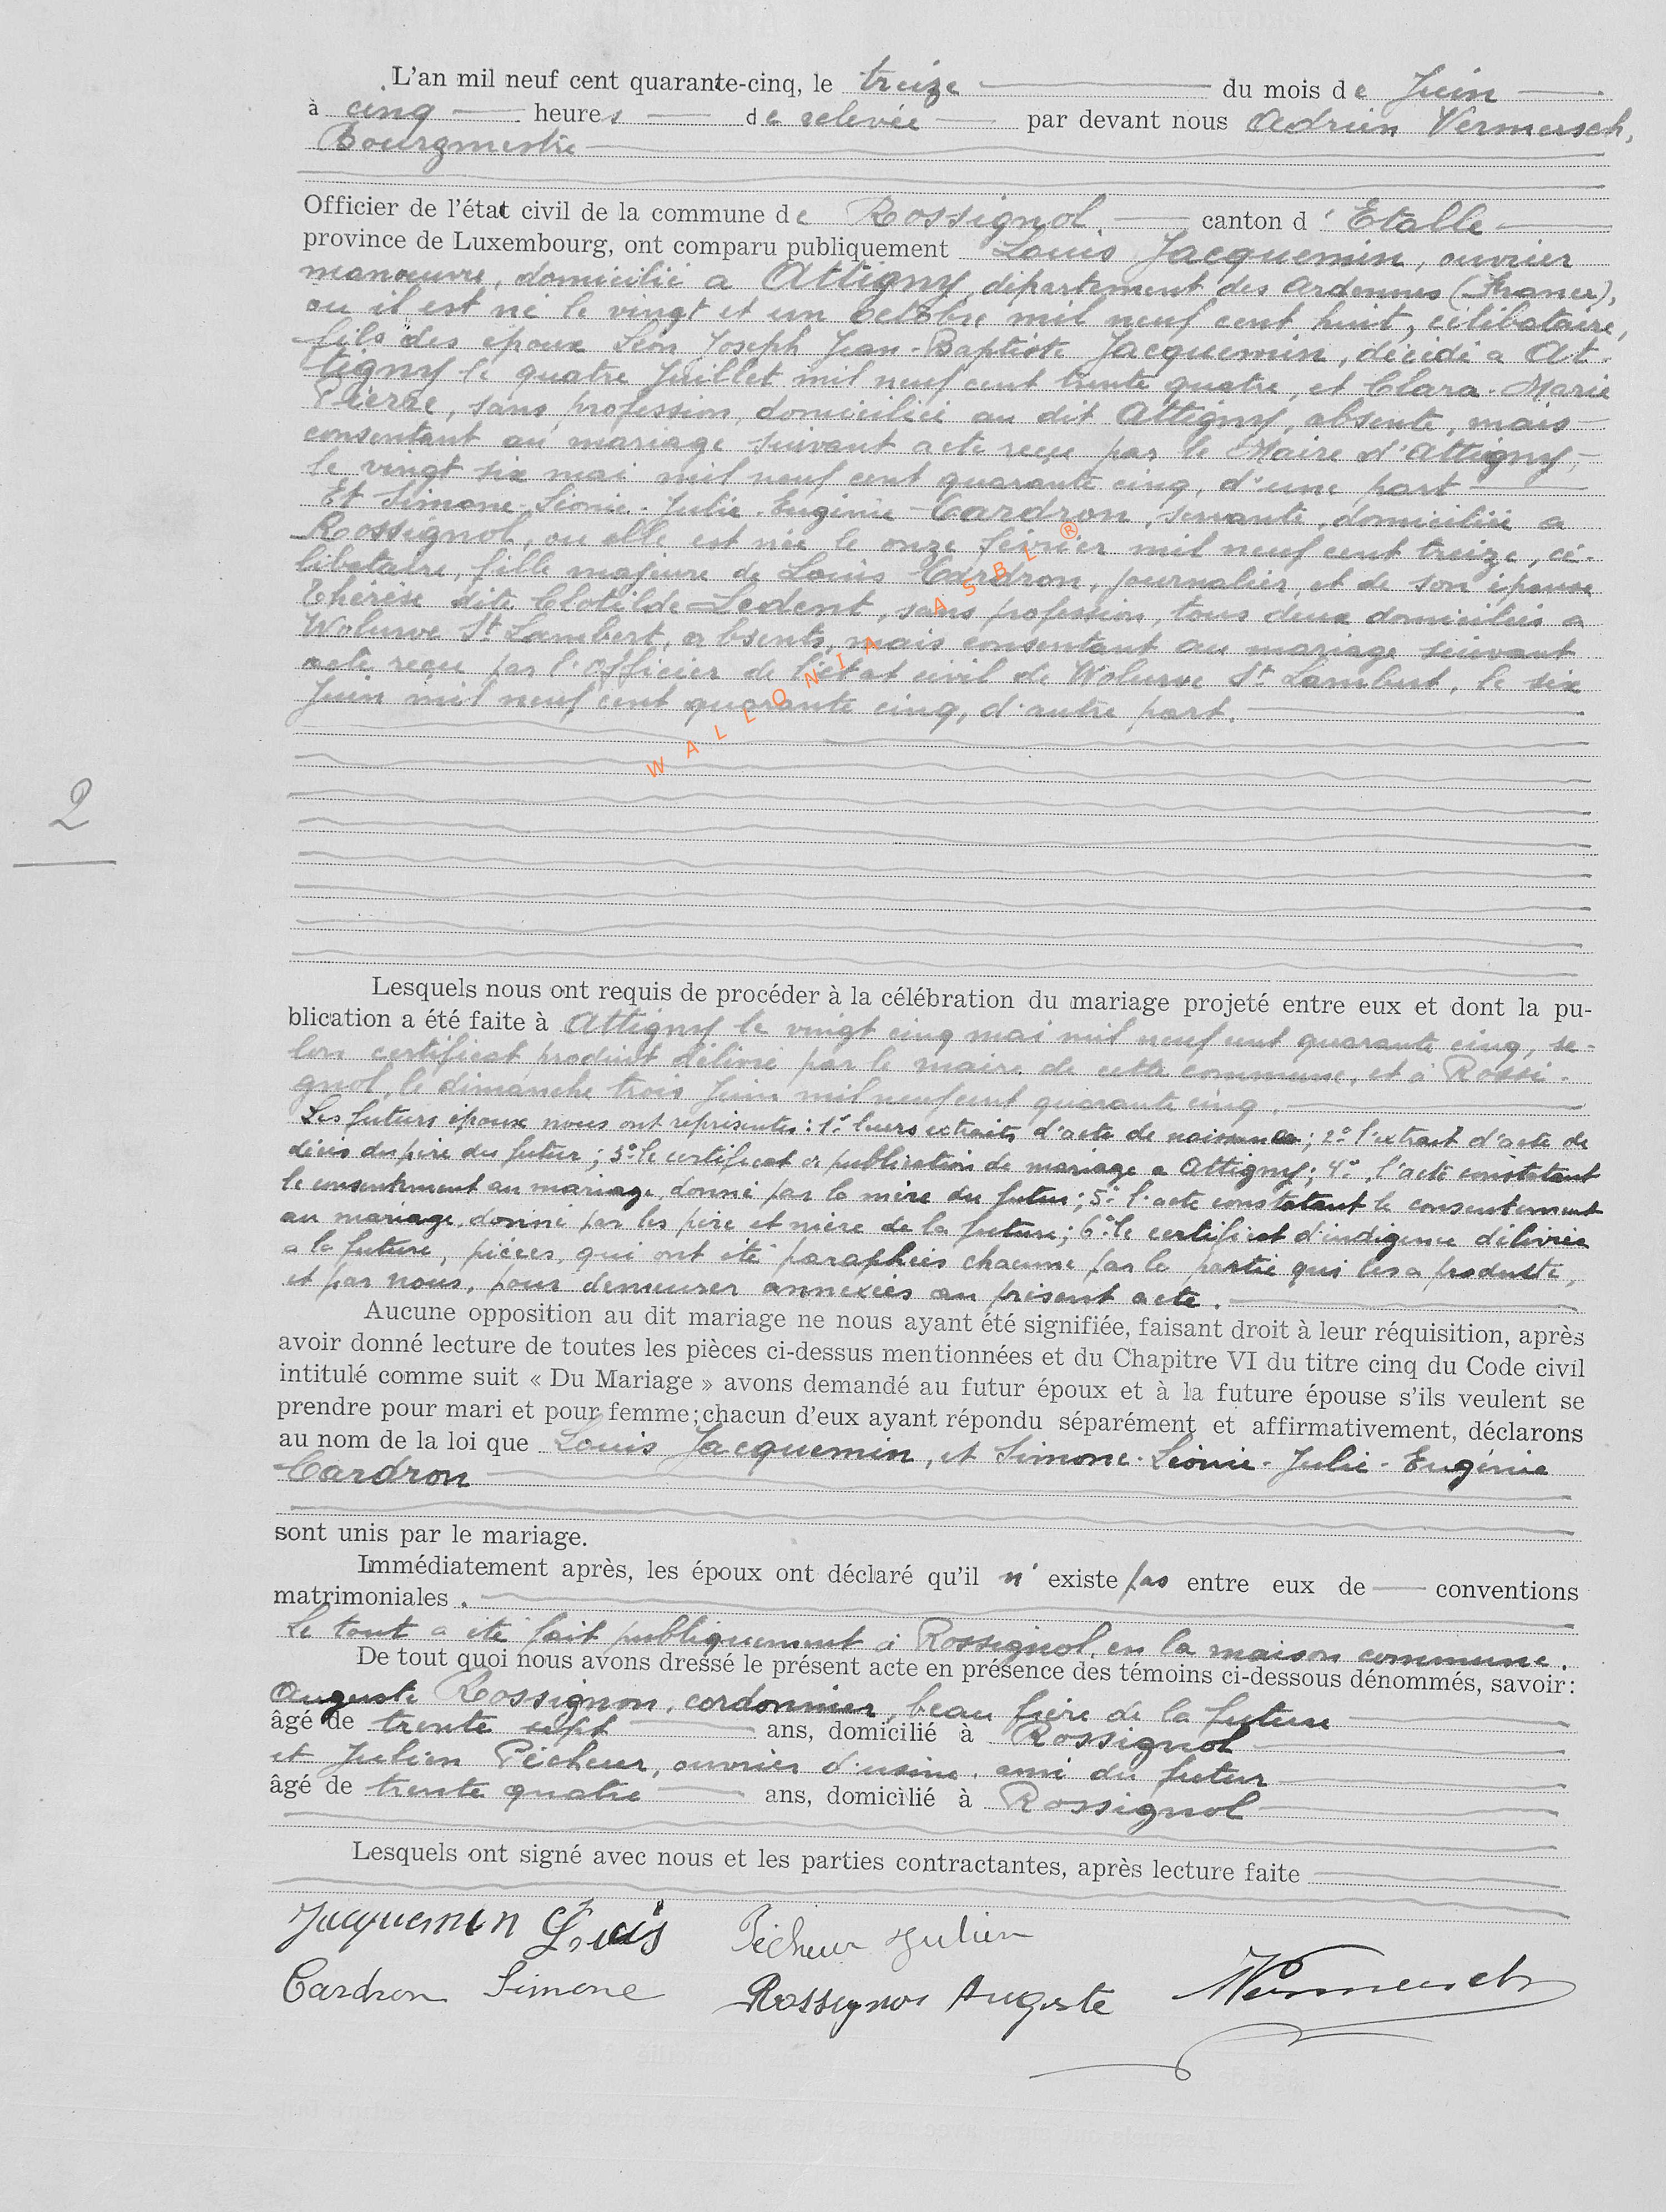 L'an mil neuf cent quarante-cinq, le treize du mois de Juin
à cinq heures de relevée par devant nous Adrien Vermersch,
Bourgmestre
Officier de l'état civil de la commune de Rossignol canton d'Etalle
province de Luxembourg, ont comparu publiquement Louis Jacquemin, ouvrier
manœuvre, domicilié a Attigny, département des Ardennes (France),
ou il est né le vingt et un octobre mil neuf cent huit, célibataire,
fils des époux Léon Joseph Jean-Baptiste Jacquemin, décédé a At-
tigny le quatre Juillet mil neuf cent trente quatre, et Clara-Marie
Pierre, sans profession, domiciliée au dit Attigny, absente, mais
consentant au mariage suivant acte reçu par le Maire d'Attigny,
le vingt six mai mil neuf cent quarante cinq, d'une part
Et Simone-Léonie-Julie-Eugénie Cardron, servante, domiciliée a
Rossignol, ou elle est née le onze février mil neuf cent treize, cé-
libataire, fille majeure de Louis Cardron, journalier, et de son épouse
Thérèse dite Clotilde Ledent, sans profession, tous deux domiciliés a
Woluwe St Lambert, absents, mais consentant au mariage suivant
acte reçu par l'Officier de l'état civil de Woluwe St Lambert, le six
Juin mil neuf cent quarante cinq, d'autre part.
WALLONIA ASBL ®
2
Lesquels nous ont requis de procéder à la célébration du mariage projeté entre eux et dont la pu-
blication a été faite à Attigny le vingt cinq mai mil neuf cent quarante cinq, se-
lon certificat produit délivré par le maire de cette commune, et à Rossi-
gnol, le dimanche trois Juin mil neuf cent quarante cinq.
Les futurs époux nous ont représentés: 1° leurs extraits d'acte de naissance; 2° l'extrait d'acte de
décès du père du futur; 3° le certificat de publication de mariage a Attigny; 4° l'acte constatant
le consentement au mariage, donné par la mère du futur; 5° l'acte constatant le consentement
au mariage, donné par les père et mère de la future; 6° le certificat d'indigence délivrée
a la future, pièces, qui ont été paraphées chacune par la partie qui les a produite,
et par nous, pour demeurer annexées au présent acte.
Aucune opposition au dit mariage ne nous ayant été signifiée, faisant droit à leur réquisition, après
avoir donné lecture de toutes les pièces ci-dessus mentionnées et du Chapitre VI du titre cinq du Code civil
intitulé comme suit « Du Mariage » avons demandé au futur époux et à la future épouse s'ils veulent se
prendre pour mari et pour femme; chacun d'eux ayant répondu séparément et affirmativement, déclarons
au nom de la loi que Louis Jacquemin, et Simone-Léonie-Julie-Eugénie
Cardron
sont unis par le mariage.
Immédiatement après, les époux ont déclaré qu'il n'existe pas entre eux de conventions
matrimoniales.
Le tout a été fait publiquement à Rossignol, en la maison commune.
De tout quoi nous avons dressé le présent acte en présence des témoins ci-dessous dénommés, savoir:
Auguste Rossignon, cordonnier, beau frère de la future
âgé de trente sept ans, domicilié à Rossignol
et Julien Pécheur, ouvrier d'usine, ami du futur
âgé de trente quatre ans, domicilié à Rossignol
Lesquels ont signé avec nous et les parties contractantes, après lecture faite
Jacquemin Louis Pécheur Julien
Cardron Simone Rossignon Auguste Vermersch